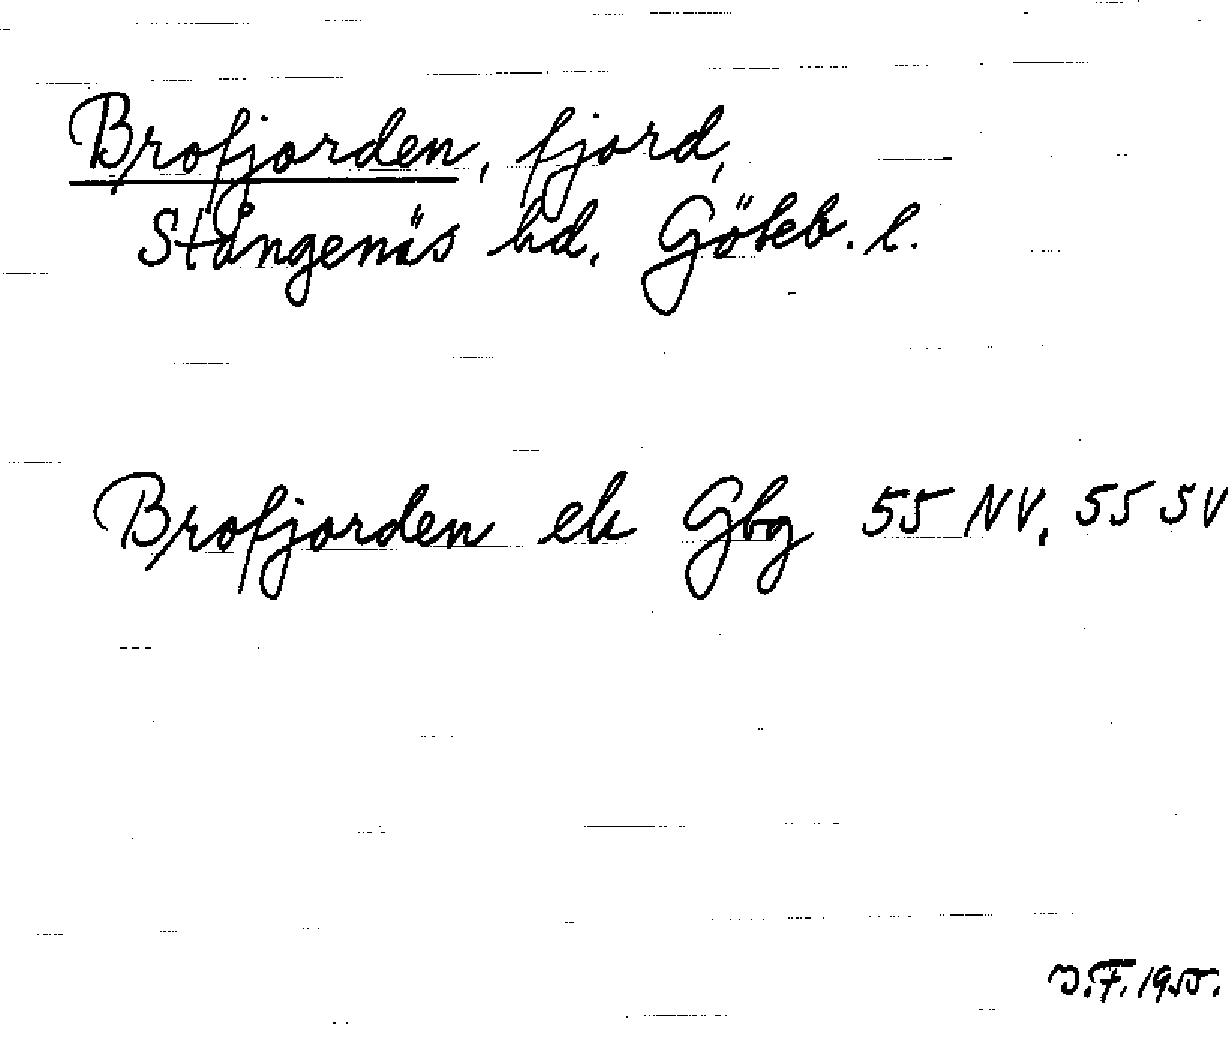 Brofjorden, fjord,
Stångenäs hd. Göteb. l.
Brofjorden ek Gbg 55 NV, 55 SV
J.F. 1950.